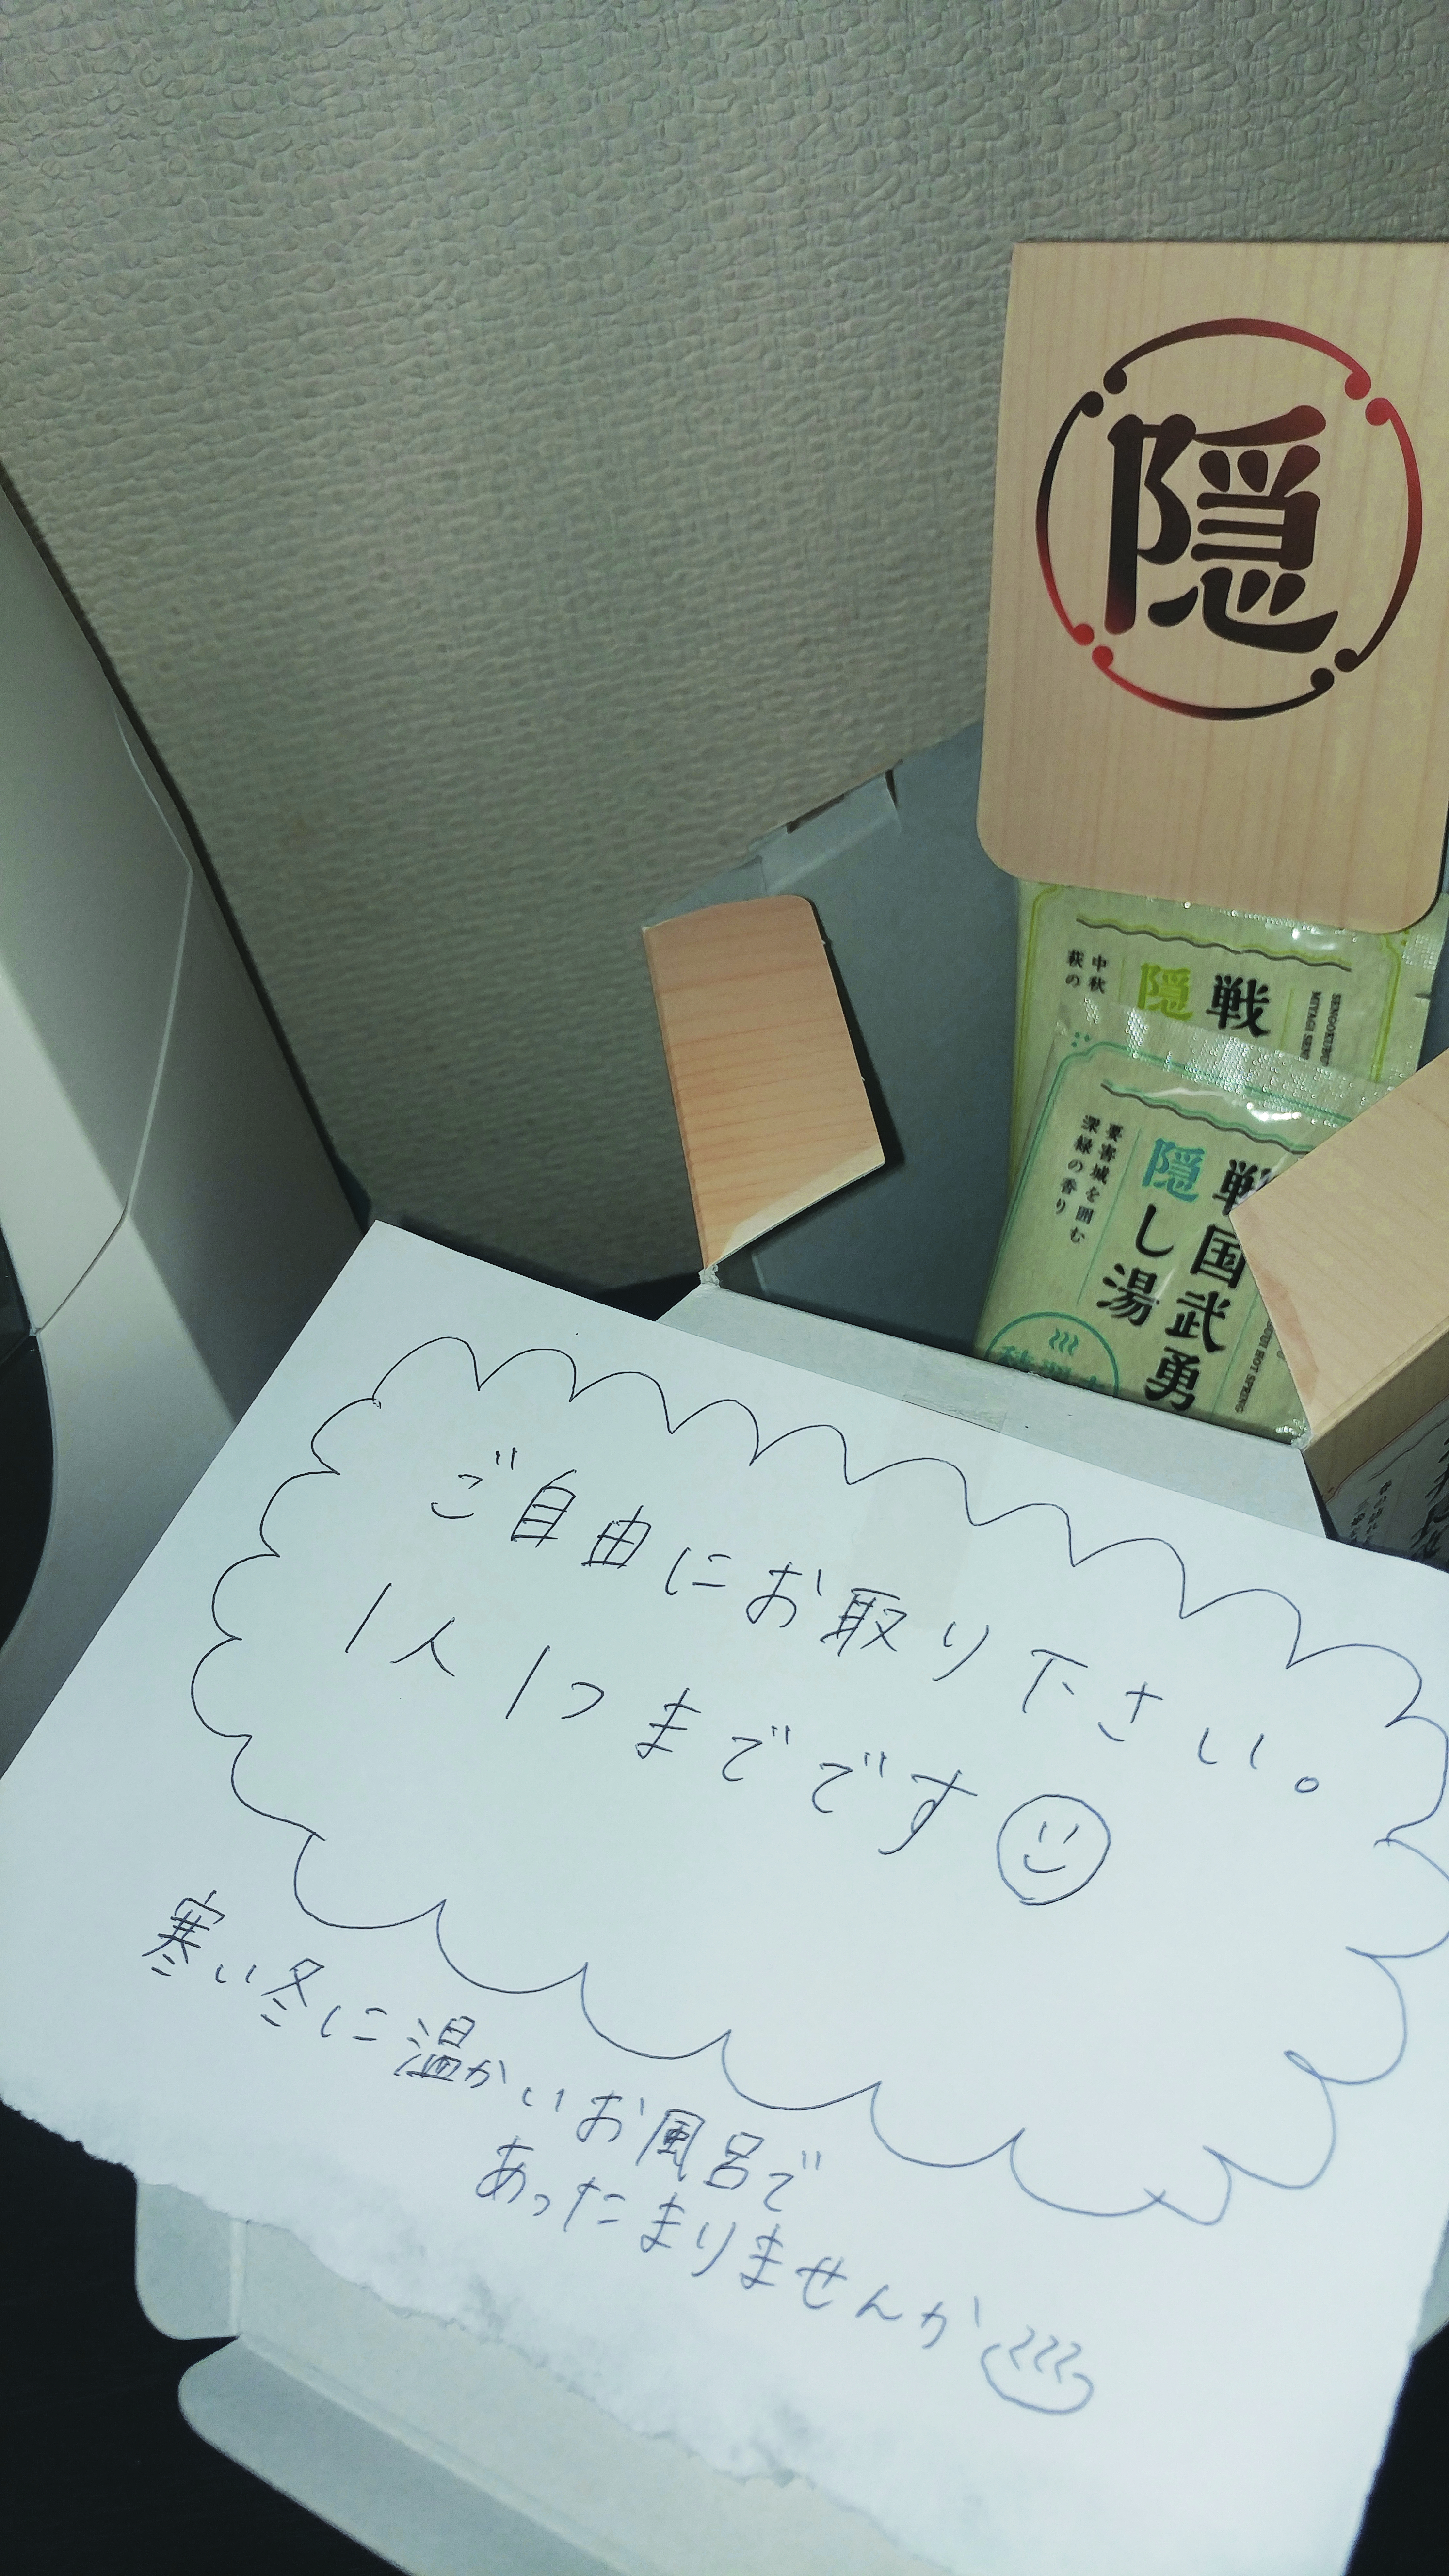 隠
戦
隠
中秋
萩の
戦国武勇
隠し湯
要害城を囲む
深緑の香り
HOT SPRING
ご自由にお取り下さい。
1人1つまでです
寒い冬に温かいお風呂で
あったまりませんか